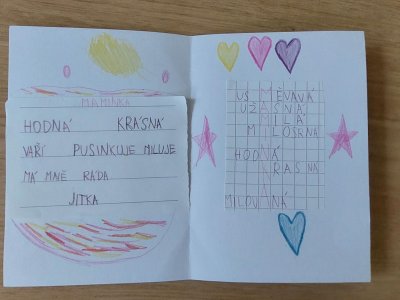 MAMINKA
HODNÁ KRÁSNÁ
VAŘÍ PUSINKUJE MILUJE
MÁ MNĚ RÁDA
JITKA
USMĚVAVÁ
UŽASNÁ
MILÁ
MILOSRNA
HODNÁ
KRASNA
MILOVANÁ